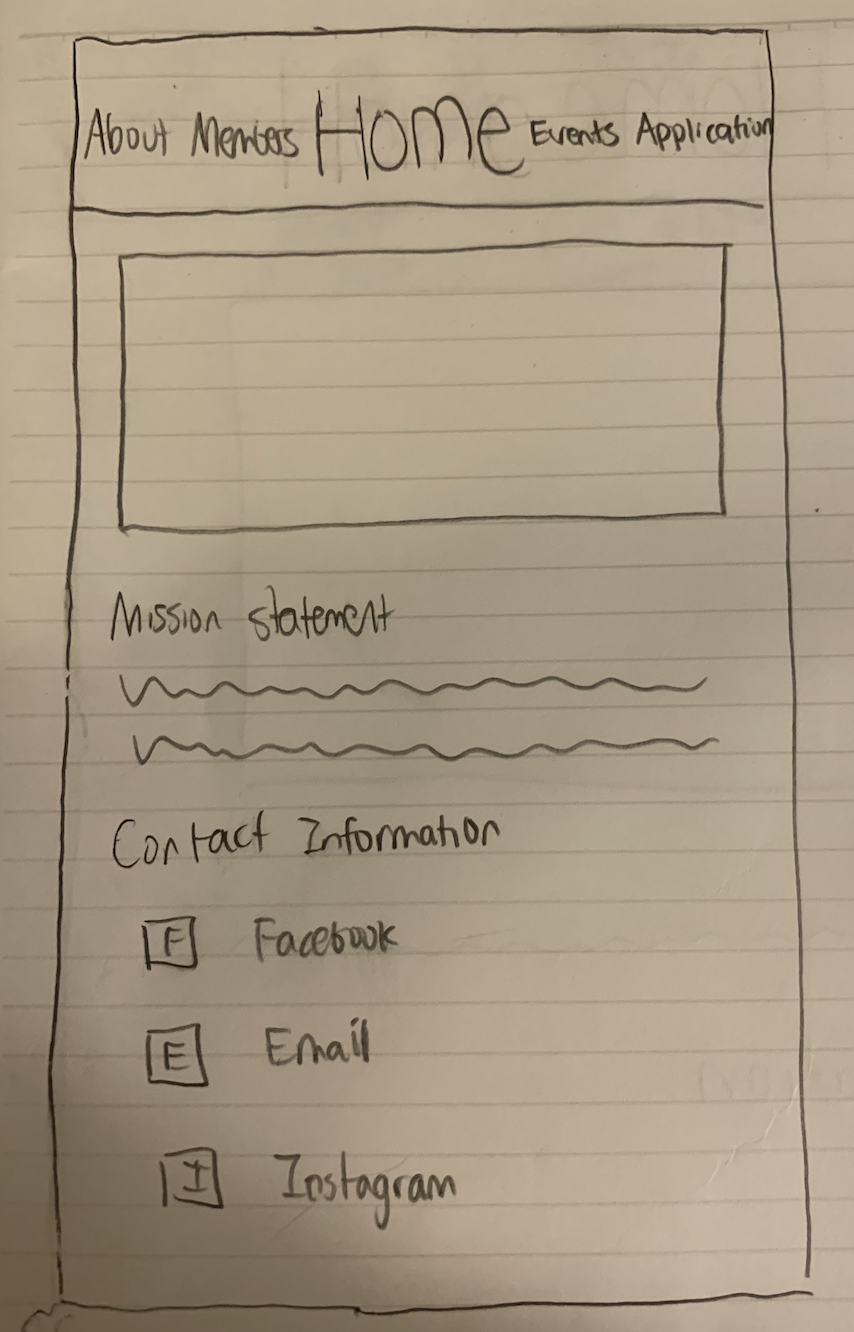 About Members Home Events Application
Mission statement
Contact Information
F Facebook
E Email
I Instagram